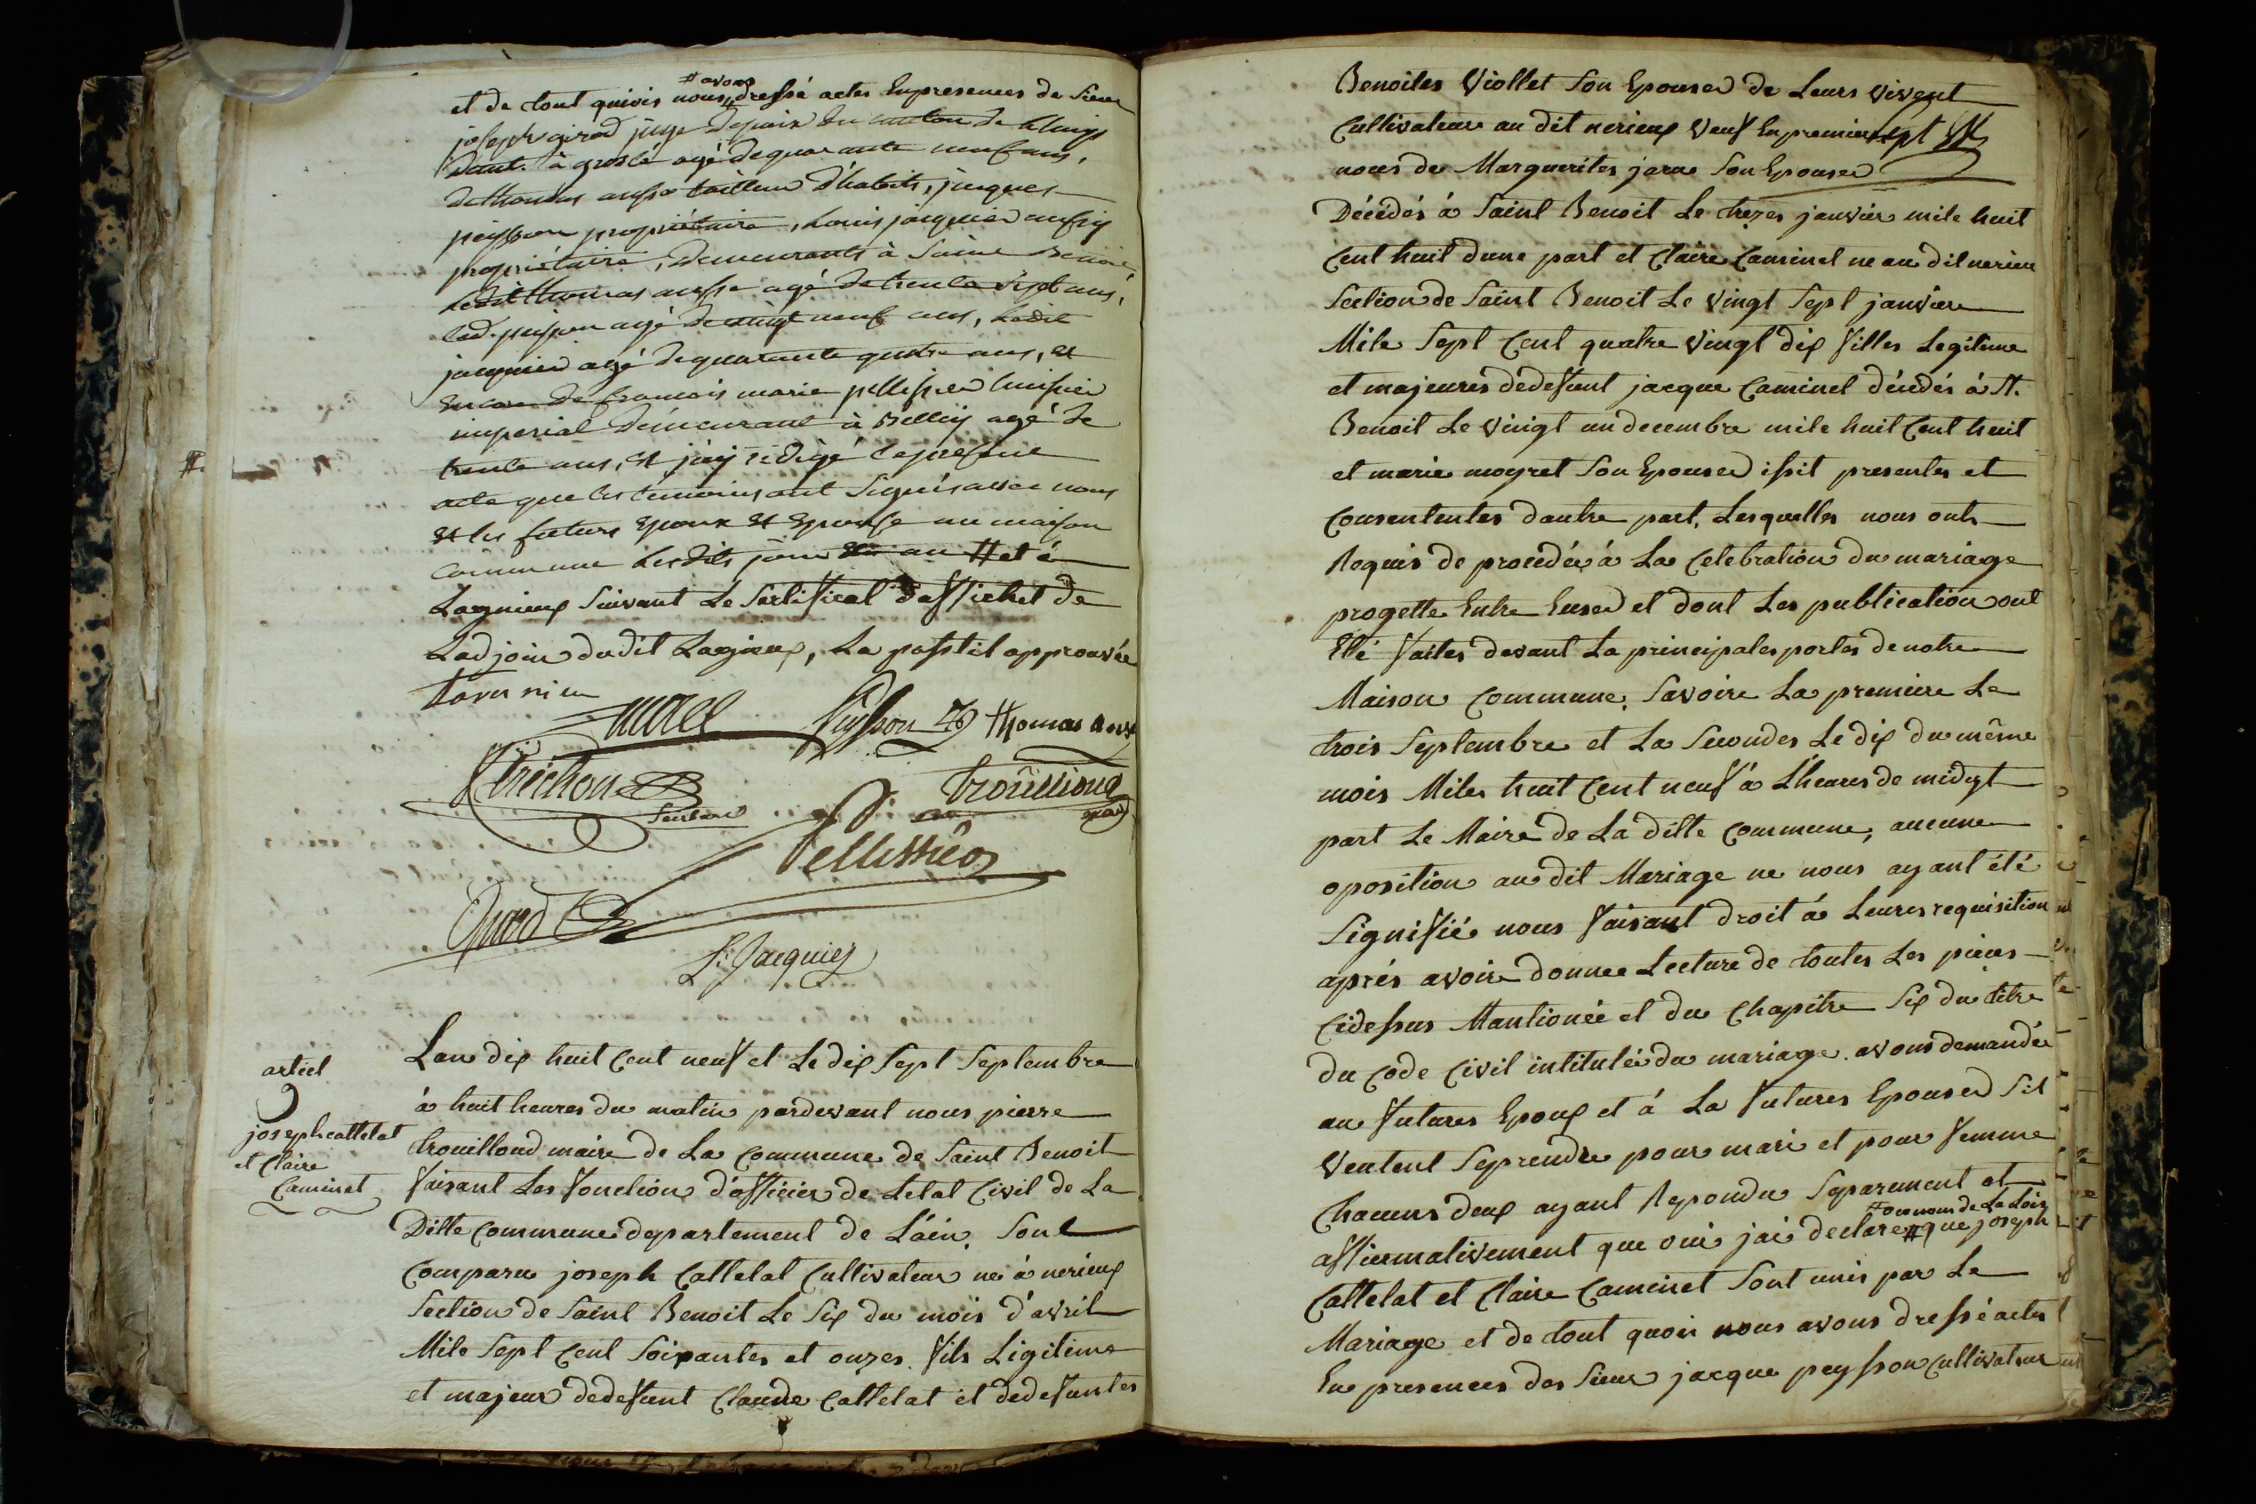 et de tout quivis nous # avons dressé actes Enpresences de Sieur
joseph girod juge depaix du canton de Lhuis
Demt. à groslé agé dequarante neuf ans,
de thomas ansse tailleur d'habits, jacques
peysson propriétaire, Louis jacquier aussy
propriétaire, demeurants à Saint Benoit,
Ledit thomas ansse agé detrente sept ans,
led. peysson agé devingt neuf ans, Ledit
jacquier agé dequarante quatre ans, et
encore de francois marie pellissier huissier
imperial demeurant à Belley agé de
trente ans, et j'ay rédigé Lepresent
acte que les temoins ont Signés avec nous
et les futurs epoux et Epouse en maison
commune Lesdits jour et an # et à
Lagnieux Suivant Le Sertificat d'affichet de
Ladjoin dudit Lagnieux, La postil approuvée
tavernier
morel Peysson Thomas ansse
Tréchon Trouilloud
maire
Pellissier
Girod
L. Jacquier
artiel
9
joseph cattelat
et Claire
Caminet
Lan dix huit Cent neuf et Le dix Sept Septembre
à huit heures du matin pardevant nous pierre
trouilloud maire de La Commune de Saint Benoit
faisant Les fonction d'officier de Letat Civil de La
Ditte Commune departement de Láin, Sont
Comparu joseph Cattelat Cultivateur né à nerieux
Section de Saint Benoit Le Six du mois d'avril
Mile Sept Cent Soixantes et onzes fils Ligitime
et majeur dedefunt Claude Cattelat et dedefuntes
Benoites Viollet Son Epouse de Leurs vivent
Cultivateur au dit nerieux veuf En premier
noces de Marguerites jarue Son Epouse
Décédés à Saint Benoit Le trezes janvier mile huit
Cent huit dune part et Claire Caminet ne au dit nerieu
Section de Saint Benoit Le vingt Sept janvier
Mile Sept Cent quatre vingt dix filles Legitime
et majeures dedefunt jacque Caminet décédés à St.
Benoit Le vingt un decembre mile huit Cent huit
et marie moyret Son Epouse issit presentes et
Consententes dautre part, Lesquelles nous onts
Requis de procedér à La Celebration du mariage
progette Entre Euse et dont Les publication ont
Eté faites devant La principales portes de notre
Maison Commune, Savoire La premiere Le
trois Septembre et La Secondes Le dix du même
mois Miles huit Cent neuf à L'heures de midy
part Le Maire de La ditte Commune, aucune
oposition au dit Mariage ne nous ayant été
Signifié nous faisant droit à Leures requisition
aprés avoir donnee Lecture de toutes Les pieces
Cidessus Mantionée et du Chapitre Six du titre
du Code Civil intitulée du mariage avons demandée
au futures Epoux et à La futures Epouse Sil
Veutent Seprendre pour mari et pour femme
Chacuns deux ayant Repondu Separement et
affirmativement que oui jai declare # au nom de La Loix que joseph
Cattelat et Claire Caminet Sont unis par Le
Mariage et de tout quoi nous avons dressé actes
En presences des Sieur jacque peysson Cultivateur